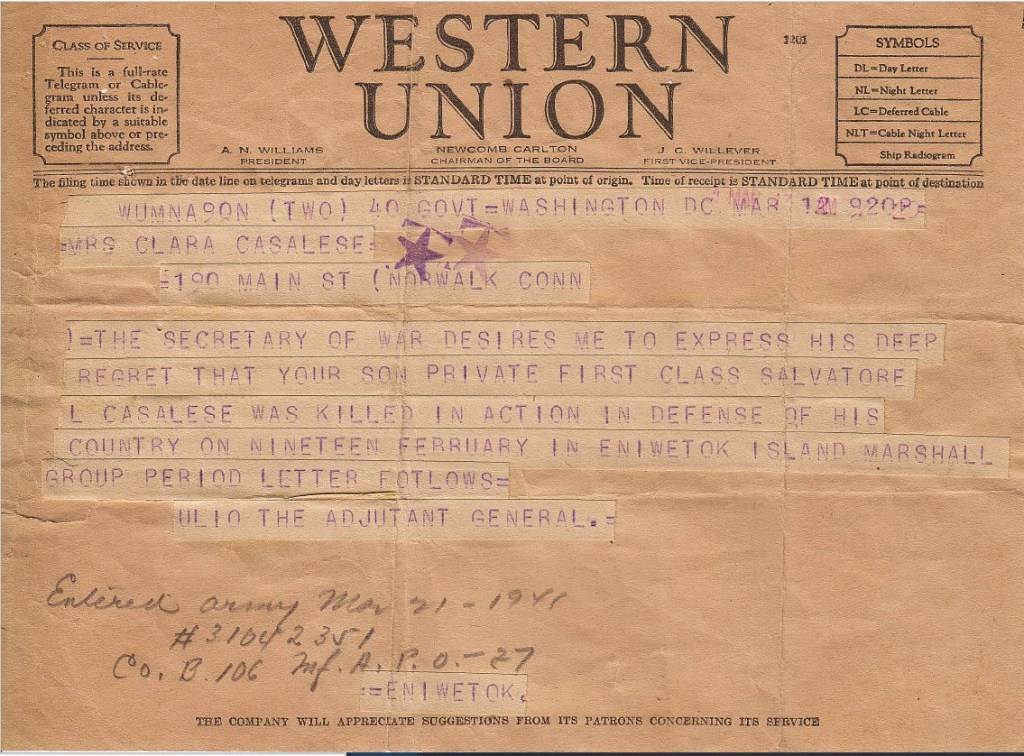 CLASS OF SERVICE
This is a full-rate
Telegram or Cable-
gram unless its de-
ferred character is in-
dicated by a suitable
symbol above or pre-
ceding the address.
WESTERN
UNION
1201
A. N. WILLIAMS
PRESIDENT
NEWCOMB CARLTON
CHAIRMAN OF THE BOARD
J. C. WILLEVER
FIRST VICE-PRESIDENT
SYMBOLS
DL=Day Letter
NL=Night Letter
LC=Deferred Cable
NLT=Cable Night Letter
Ship Radiogram
The filing time shown in the date line on telegrams and day letters is STANDARD TIME at point of origin. Time of receipt is STANDARD TIME at point of destination
WUMNA90N (TWO) 40 GOVT=WASHINGTON DC MAR 12 920P=
=MRS CLARA CASALESE=
=190 MAIN ST (NORWALK CONN
)=THE SECRETARY OF WAR DESIRES ME TO EXPRESS HIS DEEP
REGRET THAT YOUR SON PRIVATE FIRST CLASS SALVATORE
L CASALESE WAS KILLED IN ACTION IN DEFENSE OF HIS
COUNTRY ON NINETEEN FEBRUARY IN ENIWETOK ISLAND MARSHALL
GROUP PERIOD LETTER FOTLOWS=
ULIO THE ADJUTANT GENERAL.=
Entered army Mar 21-1941
#31042351
Co. B. 106 Inf. A. P. O.-27
=ENIWETOK.
THE COMPANY WILL APPRECIATE SUGGESTIONS FROM ITS PATRONS CONCERNING ITS SERVICE